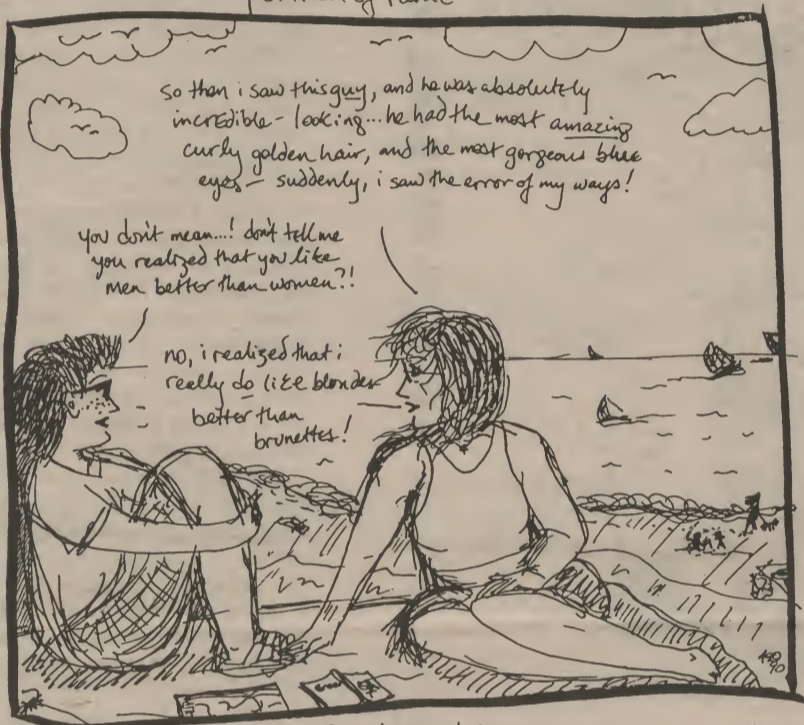 so then i saw this guy, and he was absolutely
incredible-looking... he had the most amazing
curly golden hair, and the most gorgeous blue
eyes — suddenly, i saw the error of my ways!
you don't mean...! don't tell me
you realized that you like
men better than women?!
no, i realized that i
really do like blondes
better than
brunettes!